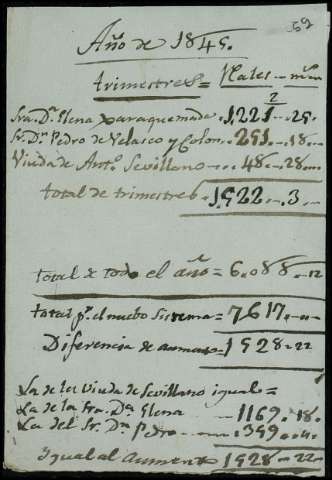 59
Año de 1845.
trimestres = Rales - mrs
2
Sra. Dª. Elena Xaraquemada . 1,221 - 25 -
Sr. Dn. Pedro de Velasco y Colon . 251 - 18 -
Viuda de Antº. Sevillano - 48 - 28 -
total de trimestres . 1,522 - 3 -
total de todo el año = 6.088 - 12
total pr. el nuebo sistema = 7617 -
Diferencia de aumento = 1528 - 22
La de la Viuda de Sevillano igual =
La de la Sra. Dª. Elena - 1169 . 18 .
La del Sr. Dn. Pedro - 359 - 4 .
Igual al aumento 1528 - 22 -